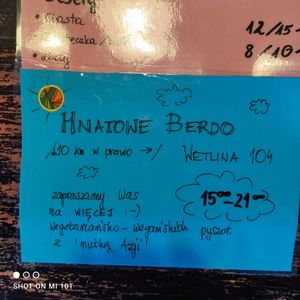 • Ciasta
12/15-
8/10-
HNATOWE BERDO
/±10 km w prawo →/ WETLINA 104
zapraszamy Was
na WIĘCEJ :-)
wegetariańsko-wegańskich pyszot
z nutką Azji
15⁰⁰-21⁰⁰
SHOT ON MI 10T